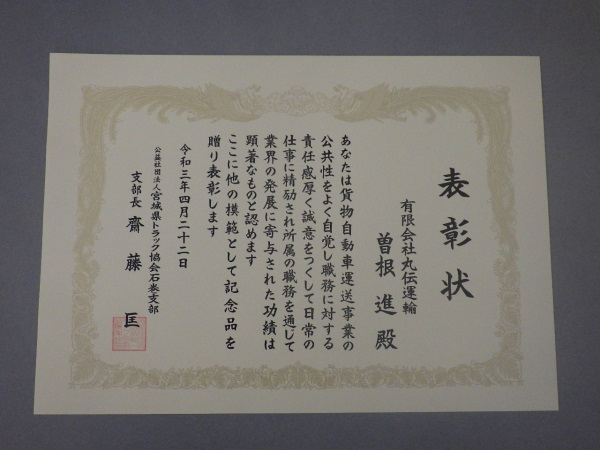 表彰状
有限会社丸伝運輸
曽根進殿
あなたは貨物自動車運送事業の
公共性をよく自覚し職務に対する
責任感厚く誠意をつくして日常の
仕事に精励され所属の職務を通じて
業界の発展に寄与された功績は
顕著なものと認めます
ここに他の模範として記念品を
贈り表彰します
令和三年四月二十二日
公益社団法人宮城県トラック協会石巻支部
支部長 齋藤匡